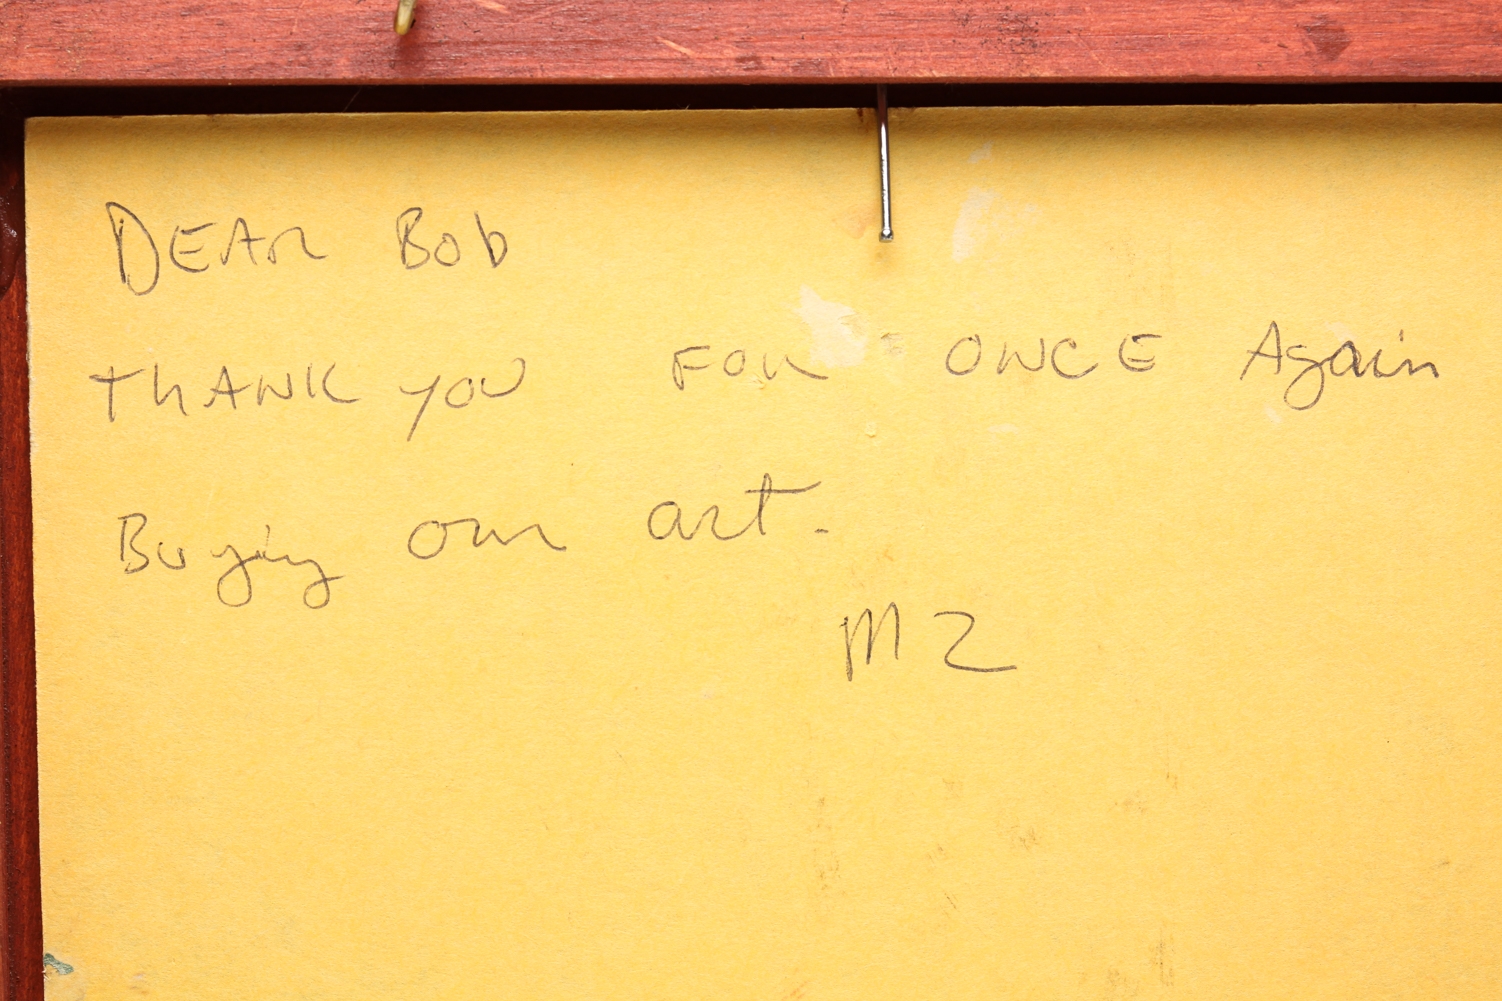 DEAR Bob
THANK YOU FOR ONCE Again
Buying our art.
MZ